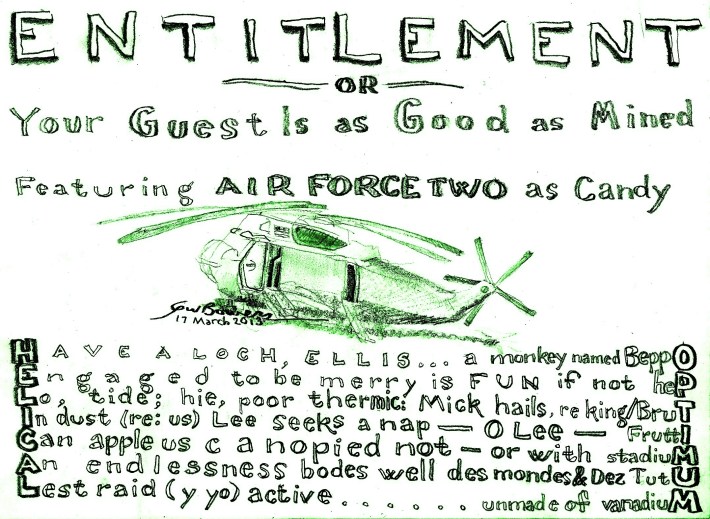 ENTITLEMENT
OR
Your Guest Is as Good as Mined
Featuring AIR FORCE TWO as Candy
17 March 2013
HAVE A LOCH, ELLIS... a monkey named BeppO
Engaged to be merry is FUN if not heP
Lo, tide; hie, poor thermic: Mick hails, re king/BruT
In dust (re: us) Lee seeks a nap — O Lee — FruttI
Can apple us canopied not — or with stadiuM
An endlessness bodes well des mondes & Dez TutU
Lest raid (y yo) active ....... unmade of vanadiuM